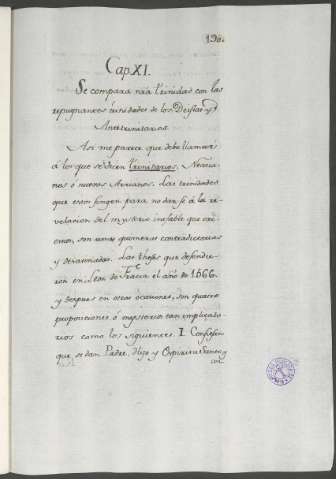 198.
Cap. XI.
Se compara nra Trinidad con las
repugnantes trinidades de los Deistas y
Antitrinitarios
Asi me parece que debe llamarse
á los que se dicen Unitarios,
nos ó nuevos Arrianos. Las trinidades
que estos fingen para no dar fé á la re-
velacion del mysterio inefable que cre
emos, son unas quimeras contradictorias
y desatinadas. Las theses que defendie
ron en Leon de Francia el año de 1666.
y despues en otras ocasiones, son quatro
proposiciones ó mysterios tan implicato-
rios como los siguientes. I. Confiesan
que se dan Padre, Hijo y Espiritu Santo, y